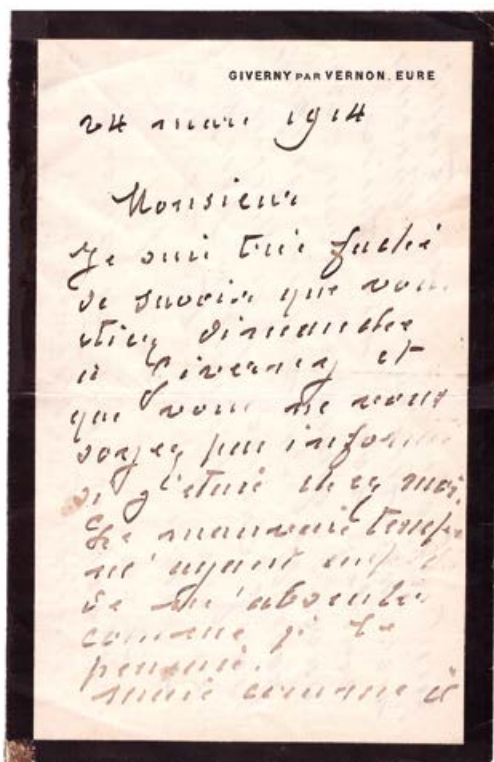 GIVERNY PAR VERNON. EURE
24 mars 1914
Monsieur
Je suis très faché
de savoir que vous
étiez dimanche
à Giverny et
que vous ne vous
soyez pas informé
si j'étais chez moi.
Le mauvais temps
m'ayant empêché
de m'absenter
comme je le
pensais.
Mais comme il